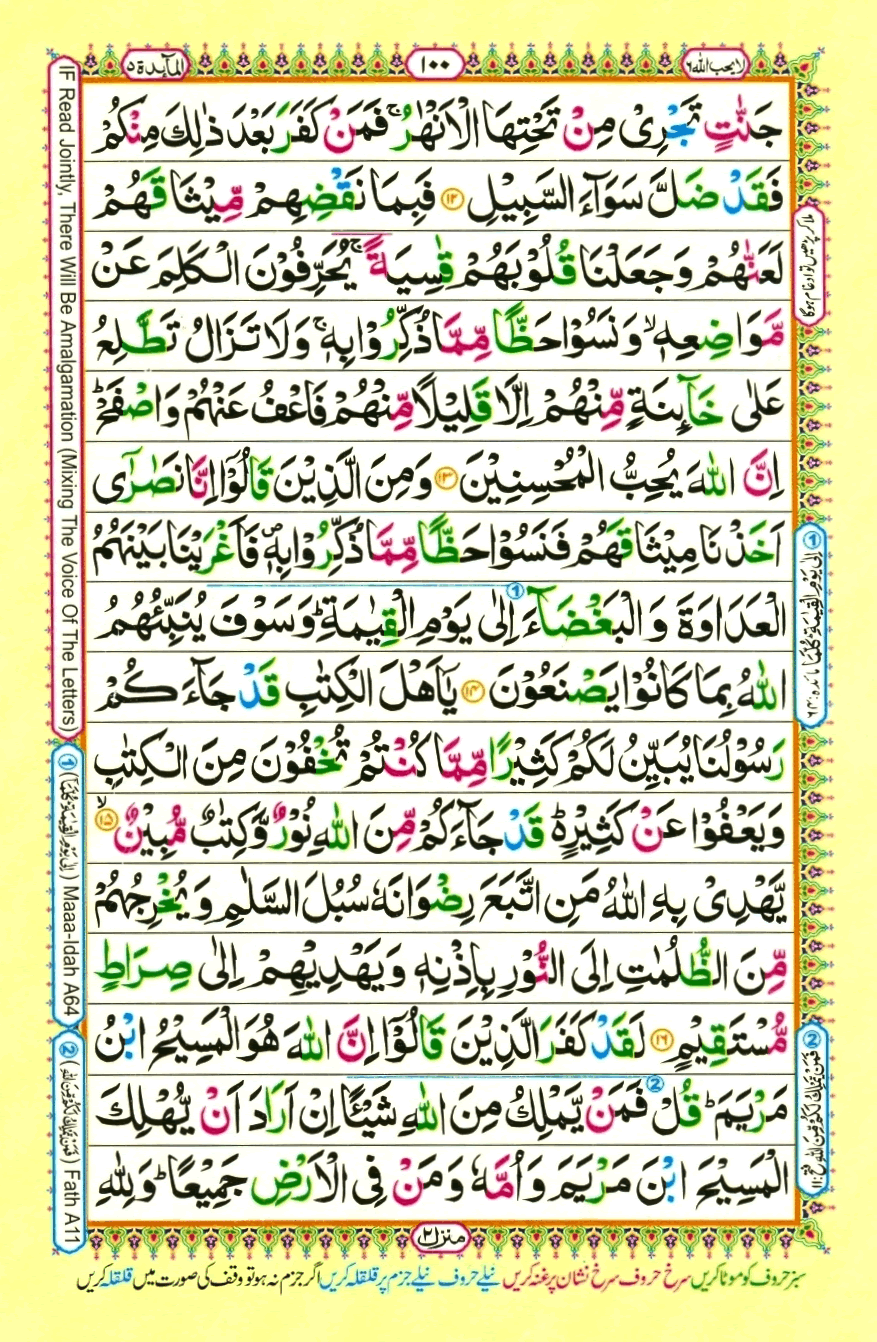 لا یحب اللہ ٦
١٠٠
المآئدة ٥
جَنّٰتٍ تَجْرِیْ مِنْ تَحْتِهَا الْاَنْهٰرُ ۚ فَمَنْ كَفَرَ بَعْدَ ذٰلِكَ مِنْكُمْ
فَقَدْ ضَلَّ سَوَآءَ السَّبِیْلِ ۝۱۲ فَبِمَا نَقْضِهِمْ مِّیْثَاقَهُمْ
لَعَنّٰهُمْ وَ جَعَلْنَا قُلُوْبَهُمْ قٰسِیَةً ۚ یُحَرِّفُوْنَ الْكَلِمَ عَنْ
مَّوَاضِعِهٖ ۙ وَ نَسُوْا حَظًّا مِّمَّا ذُكِّرُوْا بِهٖ ۚ وَ لَا تَزَالُ تَطَّلِعُ
عَلٰی خَآىِٕنَةٍ مِّنْهُمْ اِلَّا قَلِیْلًا مِّنْهُمْ فَاعْفُ عَنْهُمْ وَ اصْفَحْ ؕ
اِنَّ اللّٰهَ یُحِبُّ الْمُحْسِنِیْنَ ۝۱۳ وَ مِنَ الَّذِیْنَ قَالُوْۤا اِنَّا نَصٰرٰۤی
اَخَذْنَا مِیْثَاقَهُمْ فَنَسُوْا حَظًّا مِّمَّا ذُكِّرُوْا بِهٖ ۪ فَاَغْرَیْنَا بَیْنَهُمُ
الْعَدَاوَةَ وَ الْبَغْضَآءَ اِلٰی یَوْمِ الْقِیٰمَةِ ؕ وَ سَوْفَ یُنَبِّئُهُمُ
اللّٰهُ بِمَا كَانُوْا یَصْنَعُوْنَ ۝۱۴ یٰۤاَهْلَ الْكِتٰبِ قَدْ جَآءَكُمْ
رَسُوْلُنَا یُبَیِّنُ لَكُمْ كَثِیْرًا مِّمَّا كُنْتُمْ تُخْفُوْنَ مِنَ الْكِتٰبِ
وَ یَعْفُوْا عَنْ كَثِیْرٍ ؕ۬ قَدْ جَآءَكُمْ مِّنَ اللّٰهِ نُوْرٌ وَّ كِتٰبٌ مُّبِیْنٌ ۝۱۵ۙ
یَّهْدِیْ بِهِ اللّٰهُ مَنِ اتَّبَعَ رِضْوَانَهٗ سُبُلَ السَّلٰمِ وَ یُخْرِجُهُمْ
مِّنَ الظُّلُمٰتِ اِلَی النُّوْرِ بِاِذْنِهٖ وَ یَهْدِیْهِمْ اِلٰی صِرَاطٍ
مُّسْتَقِیْمٍ ۝۱۶ لَقَدْ كَفَرَ الَّذِیْنَ قَالُوْۤا اِنَّ اللّٰهَ هُوَ الْمَسِیْحُ ابْنُ
مَرْیَمَ ؕ قُلْ فَمَنْ یَّمْلِكُ مِنَ اللّٰهِ شَیْـًٔا اِنْ اَرَادَ اَنْ یُّهْلِكَ
الْمَسِیْحَ ابْنَ مَرْیَمَ وَ اُمَّهٗ وَ مَنْ فِی الْاَرْضِ جَمِیْعًا ؕ وَ لِلّٰهِ
منزل ٢
سبز حروف کو موٹا کریں سرخ حروف سرخ نشان پر غنہ کریں نیلے حروف نیلے جزم پر قلقلہ کریں اگر جزم نہ ہو تو وقف کی صورت میں قلقلہ کریں
ملا کر پڑھیں تو ادغام ہوگا
① اِلٰی یَوْمِ الْقِیٰمَةِ كُلَّمَا مائدہ:٦٤
② فَمَنْ یَّمْلِكُ لَكُمْ مِّنَ اللّٰهِ فتح:١١
IF Read Jointly, There Will Be Amalgamation (Mixing The Voice Of The Letters)
① (اِلٰی یَوْمِ الْقِیٰمَةِ كُلَّمَا) Maaa-Idah A64
② (فَمَنْ یَّمْلِكُ لَكُمْ مِّنَ اللّٰهِ) Fath A11